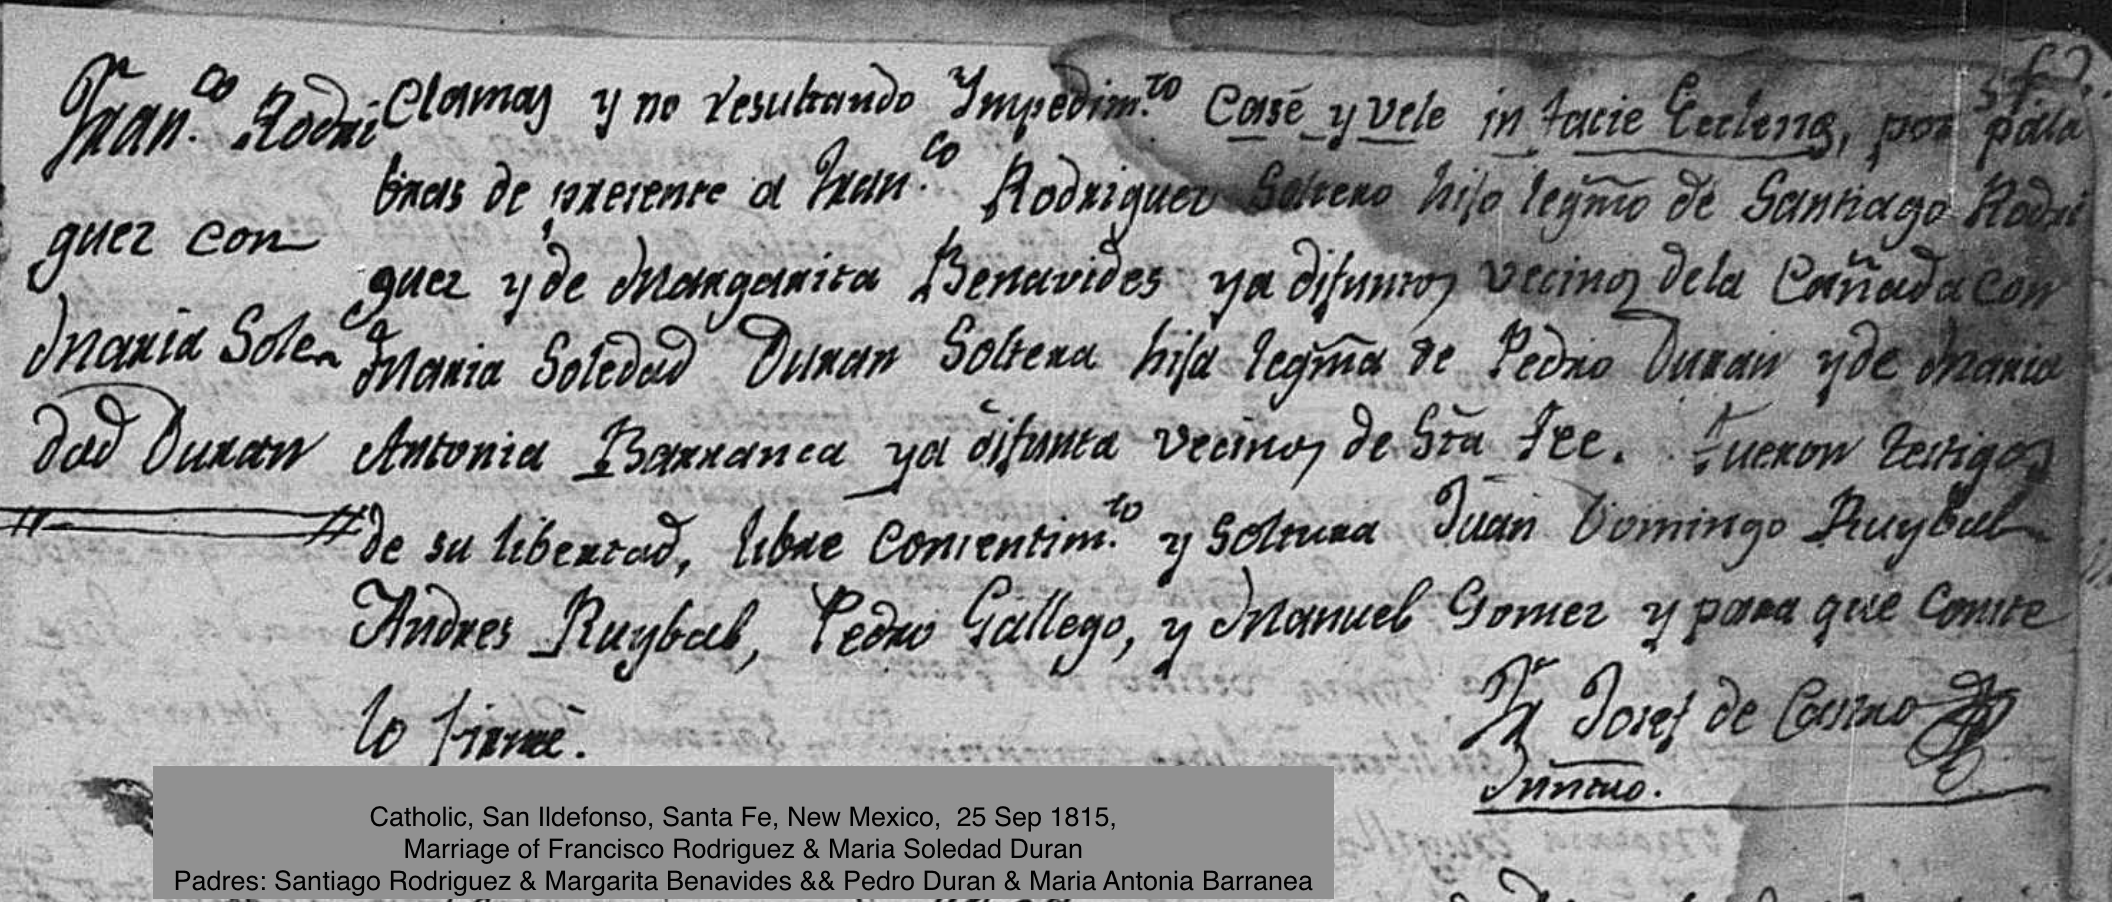 57.
Fran.co Rodri
guez con
Maria Sole
dad Duran
clamas y no resultando Impedim.to Casé y vele in facie Eccleng, por pala
bras de presente a Fran.co Rodriguez Soltero hijo legmo de Santiago Rodri
guez y de Margarita Benavides ya difuntos vecinos de la Cañada con
Maria Soledad Duran Soltera hija legma de Pedro Duran y de Maria
Antonia Barranca ya difunta vecinos de Sta Fee. Fueron testigos
de su libertad, libre consentim.to y soltura Juan Domingo Ruybal
Andres Ruybal, Pedro Gallego, y Manuel Gomez y para que conste
lo firmé.
Fr Josef de Castro
Catholic, San Ildefonso, Santa Fe, New Mexico, 25 Sep 1815,
Marriage of Francisco Rodriguez & Maria Soledad Duran
Padres: Santiago Rodriguez & Margarita Benavides && Pedro Duran & Maria Antonia Barranea